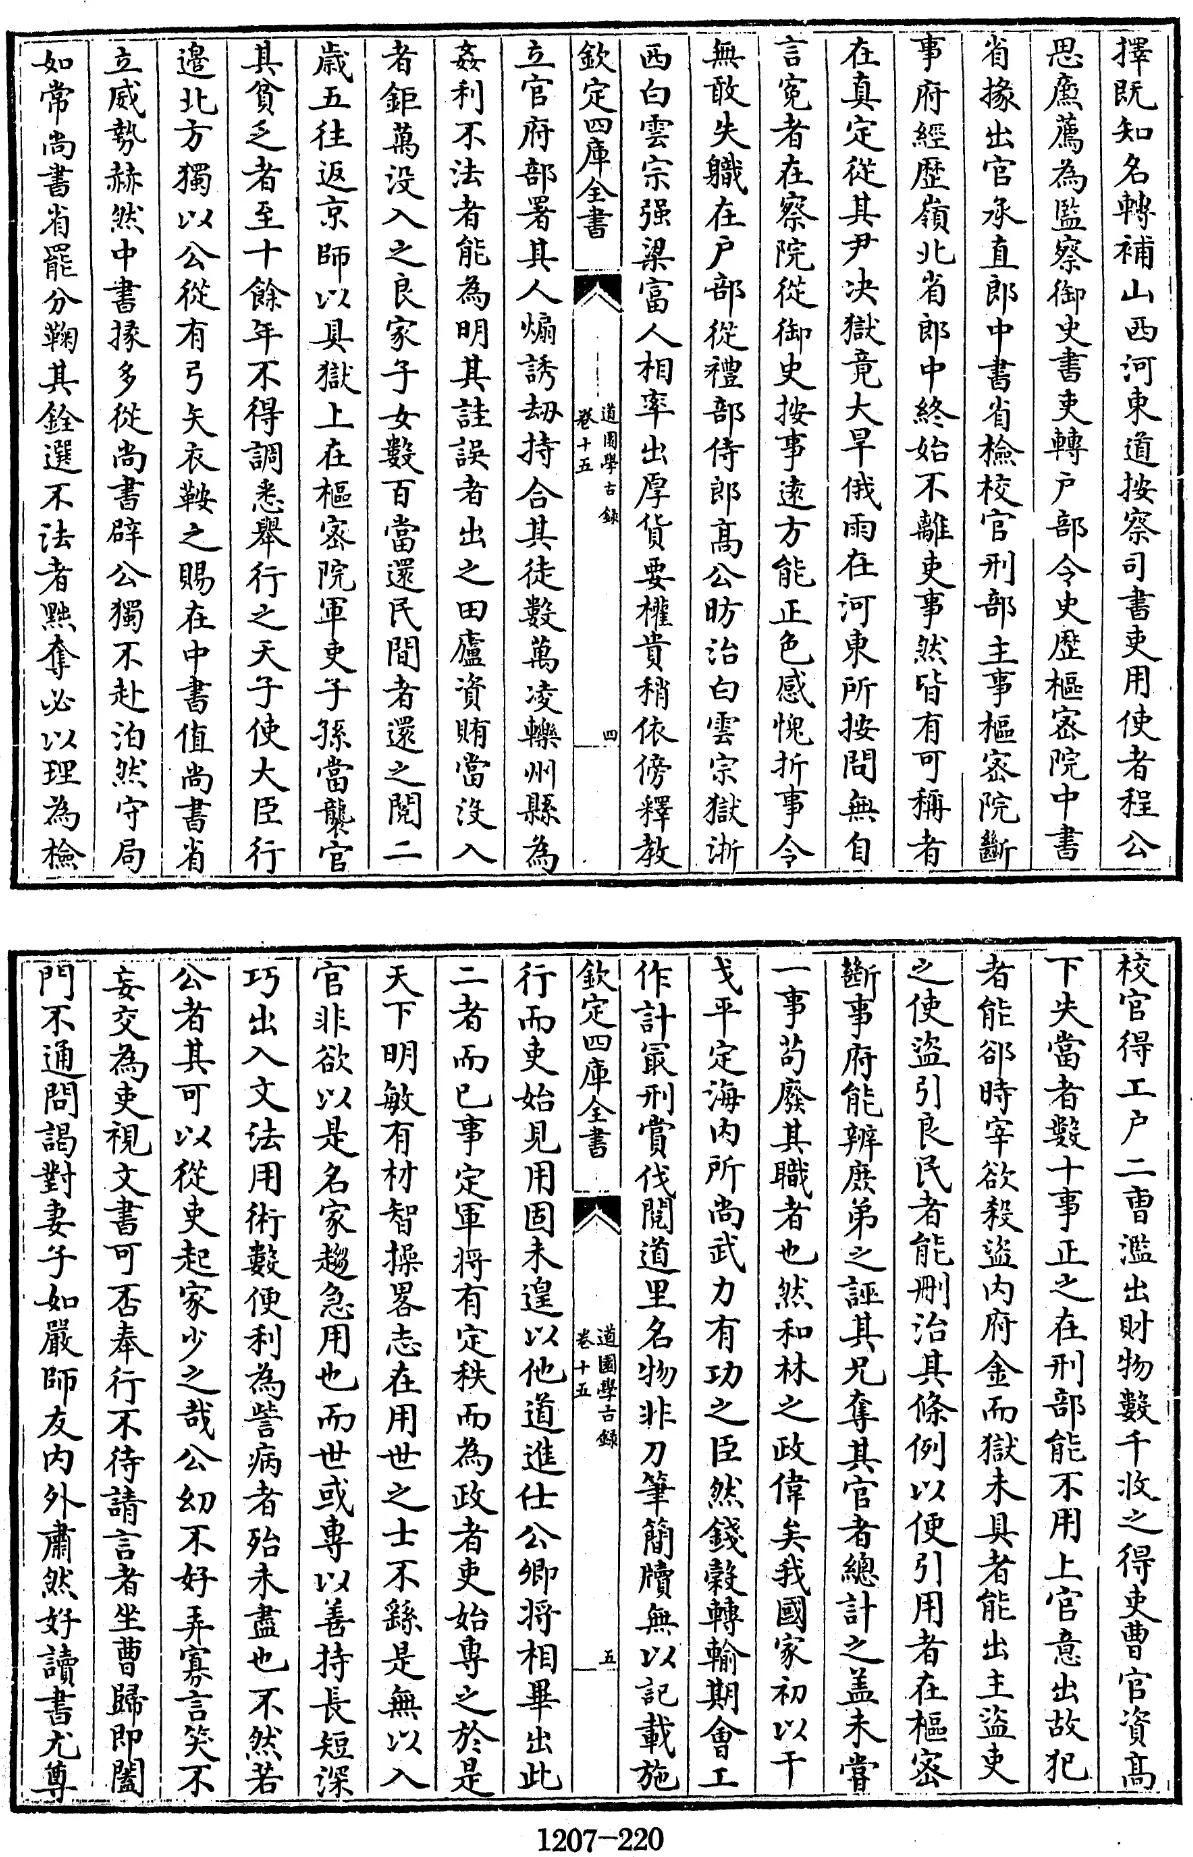 擇既知名轉補山西河東道按察司書吏用使者程公
思廉薦為監察御史書吏轉户部令史歴樞宻院中書
省掾出官承直郎中書省檢校官刑部主事樞宻院斷
事府經歴嶺北省郎中終始不離吏事然皆有可稱者
在真定從其尹决獄竟大旱俄雨在河東所按問無自
言寃者在察院從御史按事逺方能正色感愧折事令
無敢失職在户部從禮部侍郎髙公昉治白雲宗獄浙
西白雲宗强梁富人相率出厚貨要權貴稍依傍釋教
欽定四庫全書
道園學古録
卷十五
四
立官府部署其人煽誘刼持合其徒數萬凌轢州縣為
姦利不法者能為明其詿誤者出之田廬資賄當沒入
者鉅萬沒入之良家子女數百當還民間者還之閲二
歳五往返京師以具獄上在樞宻院軍吏子孫當襲官
其貧乏者至十餘年不得調悉舉行之天子使大臣行
邉北方獨以公從有弓矢衣鞍之賜在中書值尚書省
立威勢赫然中書掾多從尚書辟公獨不赴泊然守局
如常尚書省罷分鞫其銓選不法者黜奪必以理為檢
校官得工户二曹濫出財物數千收之得吏曹官資髙
下失當者數十事正之在刑部能不用上官意出故犯
者能郤時宰欲殺盜内府金而獄未具者能出主盜吏
之使盜引良民者能刪治其條例以便引用者在樞宻
斷事府能辨庶弟之誣其兄奪其官者總計之盖未嘗
一事茍廢其職者也然和林之政偉矣我國家初以干
戈平定海内所尚武力有功之臣然錢糓轉輸期㑹工
作計㝡刑賞伐閲道里名物非刀筆簡牘無以記載施
欽定四庫全書
道園學古録
卷十五
五
行而吏始見用固未遑以他道進仕公卿将相畢出此
二者而已事定軍将有定秩而為政者吏始專之於是
天下明敏有材智操畧志在用世之士不繇是無以入
官非欲以是名家趨急用也而世或專以善持長短深
巧出入文法用術數便利為訾病者殆未盡也不然若
公者其可以從吏起家少之哉公幼不好弄寡言笑不
妄交為吏視文書可否奉行不待請言者坐曹歸即闔
門不通問謁對妻子如嚴師友内外肅然好讀書尤尊
1207-220